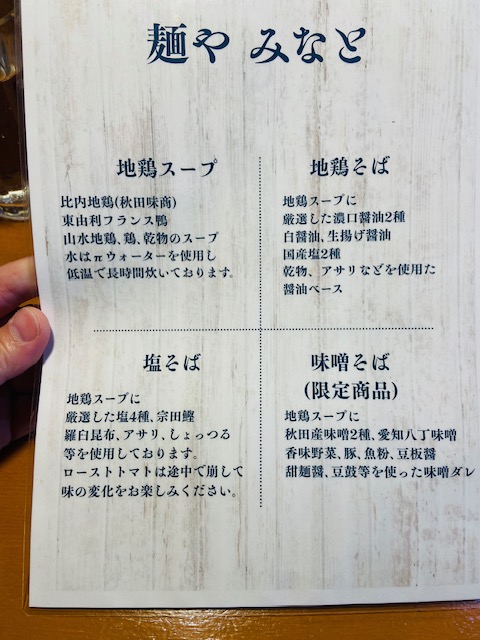 麺や みなと
地鶏スープ
比内地鶏(秋田味商)
東由利フランス鴨
山水地鶏、鶏、乾物のスープ
水はπウォーターを使用し
低温で長時間炊いております。
地鶏そば
地鶏スープに
厳選した濃口醤油2種
白醤油、生揚げ醤油
国産塩2種
乾物、アサリなどを使用した
醤油ベース
塩そば
地鶏スープに
厳選した塩4種、宗田鰹
羅臼昆布、アサリ、しょっつる
等を使用しております。
ローストトマトは途中で崩して
味の変化をお楽しみください。
味噌そば
(限定商品)
地鶏スープに
秋田産味噌2種、愛知八丁味噌
香味野菜、豚、魚粉、豆板醤
甜麺醤、豆鼓等を使った味噌ダレ